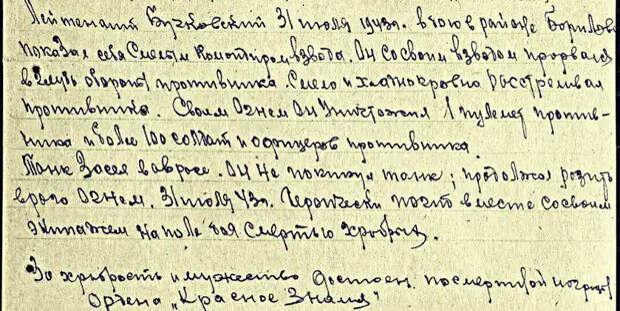 Лейтенант Бучковский 31 июля 1943г. в бою в районе Борилово
показал себя смелым командиром взвода. Он со своим взводом прорвался
в глубь обороны противника. Смело и хладнокровно расстреливал
противника. Своим огнем он уничтожил 1 пулемет против-
ника и более 100 солдат и офицеров противника
Танк засел в овраге. Он не покинул танк; продолжал разить
врага огнем. 31 июля 43г. Героически погиб вместе со своим
экипажем на поле боя смертью храбрых.
За храбрость и мужество достоен посмертной награды
Ордена „Красное Знамя"